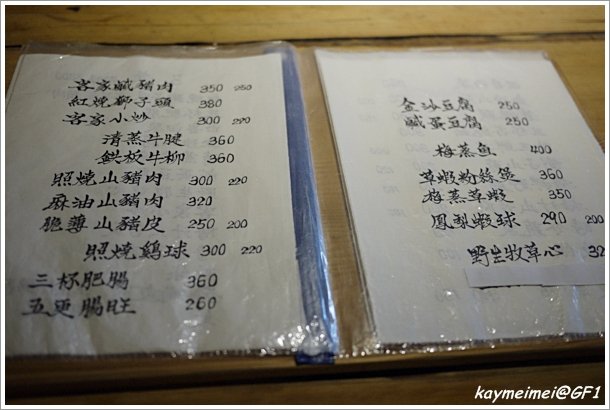 客家鹹豬肉 350 250
紅燒獅子頭 380
客家小炒 300 220
清蒸牛腱 360
鉄板牛柳 360
照燒山豬肉 300 220
麻油山豬肉 320
脆薄山豬皮 250 200
照燒鷄球 300 220
三杯肥腸 360
五更腸旺 260
金沙豆腐 250
鹹蛋豆腐 250
梅蒸魚 400
草蝦粉絲堡 360
梅蒸草蝦 350
鳳梨蝦球 290 200
野生牧草心 32
kaymeimei@GF1